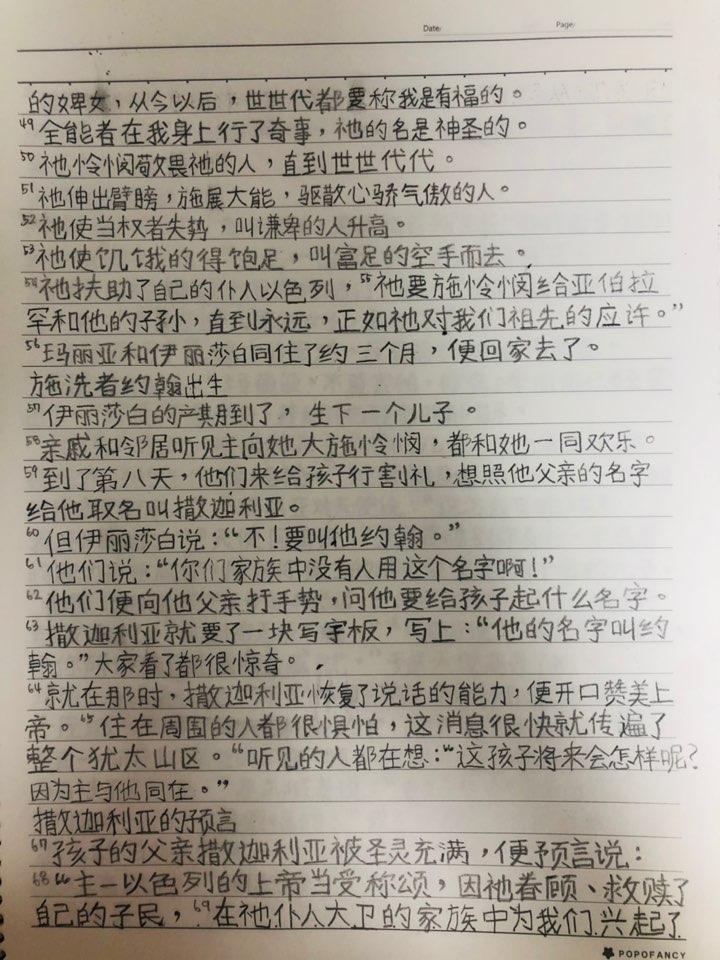 Date:
Page:
的婢女，从今以后，世世代都要称我是有福的。
49 全能者在我身上行了奇事，祂的名是神圣的。
50 祂怜悯敬畏祂的人，直到世世代代。
51 祂伸出臂膀，施展大能，驱散心骄气傲的人。
52 祂使当权者失势，叫谦卑的人升高。
53 祂使饥饿的得饱足，叫富足的空手而去。
54 祂扶助了自己的仆人以色列，55 祂要施怜悯给亚伯拉
罕和他的子孙，直到永远，正如祂对我们祖先的应许。”
56 玛丽亚和伊丽莎白同住了约三个月，便回家去了。
施洗者约翰出生
57 伊丽莎白的产期到了，生下一个儿子。
58 亲戚和邻居听见主向她大施怜悯，都和她一同欢乐。
59 到了第八天，他们来给孩子行割礼，想照他父亲的名字
给他取名叫撒迦利亚。
60 但伊丽莎白说：“不！要叫他约翰。”
61 他们说：“你们家族中没有人用这个名字啊！”
62 他们便向他父亲打手势，问他要给孩子起什么名字。
63 撒迦利亚就要了一块写字板，写上：“他的名字叫约
翰。”大家看了都很惊奇。
64 就在那时，撒迦利亚恢复了说话的能力，便开口赞美上
帝。65 住在周围的人都很惧怕，这消息很快就传遍了
整个犹太山区。66 听见的人都在想：“这孩子将来会怎样呢？
因为主与他同在。”
撒迦利亚的预言
67 孩子的父亲撒迦利亚被圣灵充满，便预言说：
68 “主—以色列的上帝当受称颂，因祂眷顾、救赎了
自己的子民，69 在祂仆人大卫的家族中为我们兴起了
POPOFANCY